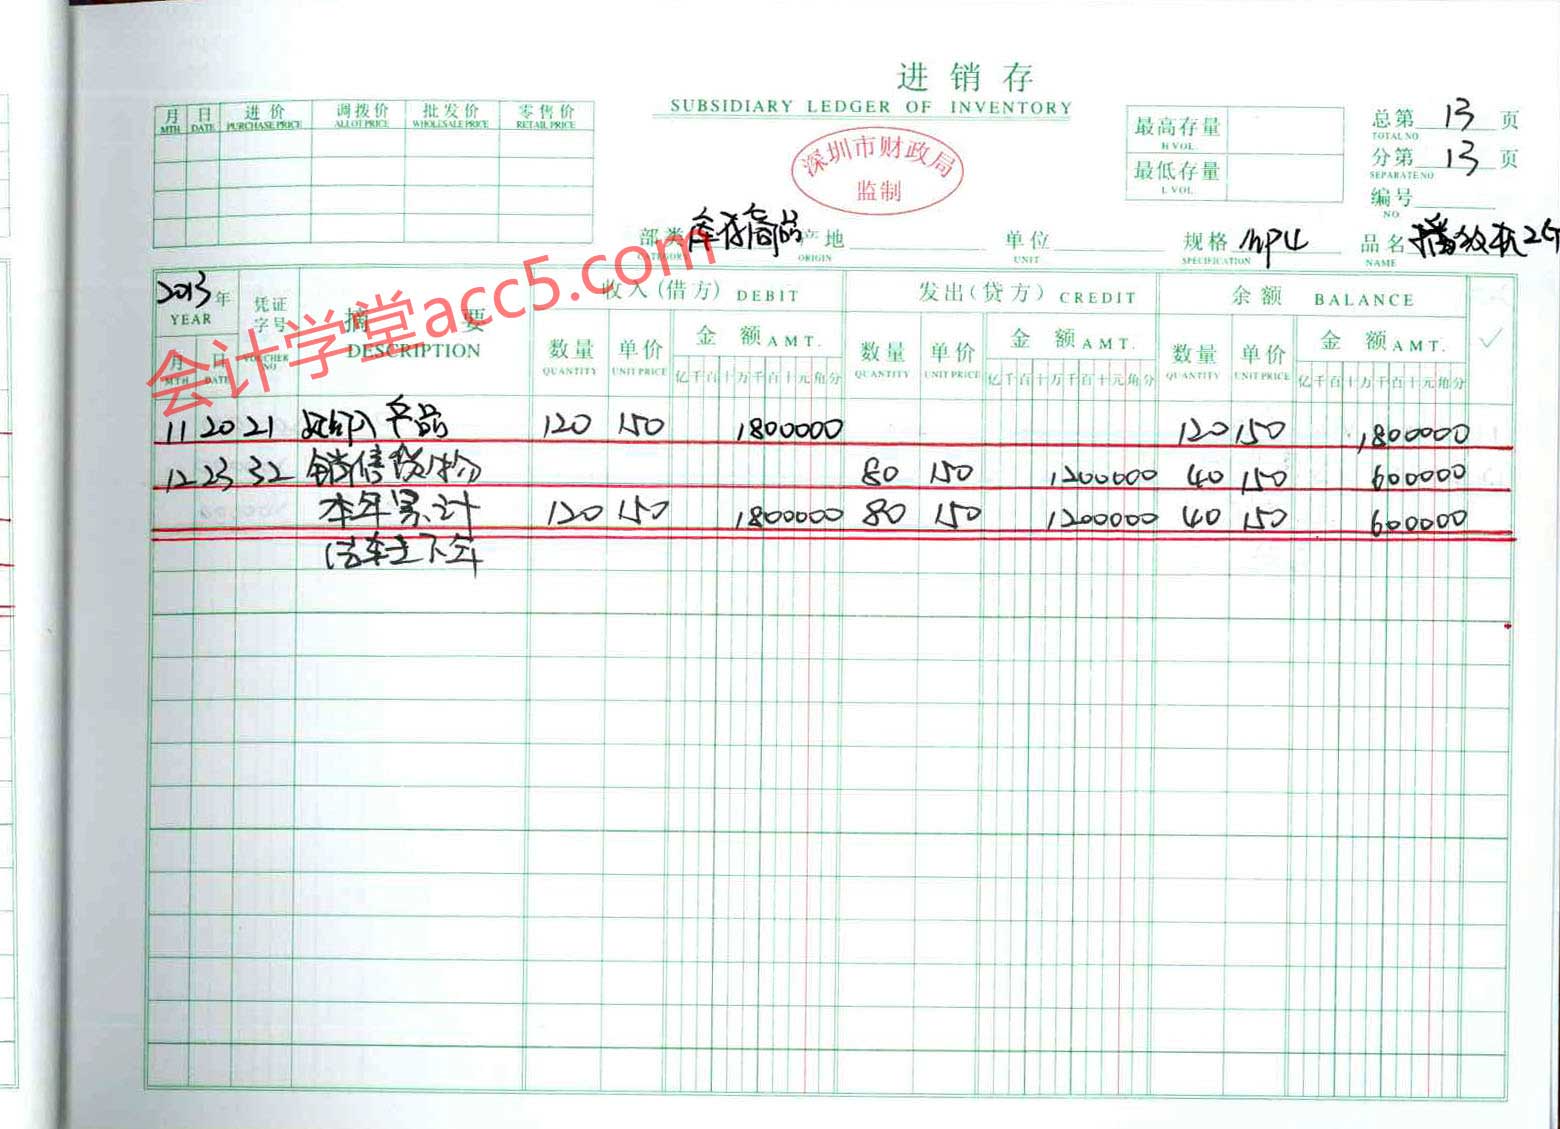 进销存
SUBSIDIARY LEDGER OF INVENTORY
深圳市财政局
监制
月 日 进价 调拨价 批发价 零售价
MTH DATE PURCHASE PRICE ALLOT PRICE WHOLESALE PRICE RETAIL PRICE
最高存量
H VOL.
最低存量
L VOL.
总第 13 页
TOTAL NO
分第 13 页
SEPARATE NO
编号
NO.
部类 库存商品 产地 单位 规格 MP4 品名 播放机2G
CATEGORY ORIGIN UNIT SPECIFICATION NAME
会计学堂acc5.com
2013年 凭证字号 摘要 收入(借方) DEBIT 发出(贷方) CREDIT 余额 BALANCE
YEAR VOUCHER NO DESCRIPTION
月 日 数量 单价 金额 AMT. 数量 单价 金额 AMT. 数量 单价 金额 AMT.
MTH DATE QUANTITY UNIT PRICE QUANTITY UNIT PRICE QUANTITY UNIT PRICE
亿千百十万千百十元角分 亿千百十万千百十元角分 亿千百十万千百十元角分
11 20 21 产品 120 150 1800000 120 150 1800000
12 23 32 销售货物 80 150 1200000 40 150 600000
本年累计 120 150 1800000 80 150 1200000 40 150 600000
结转下年